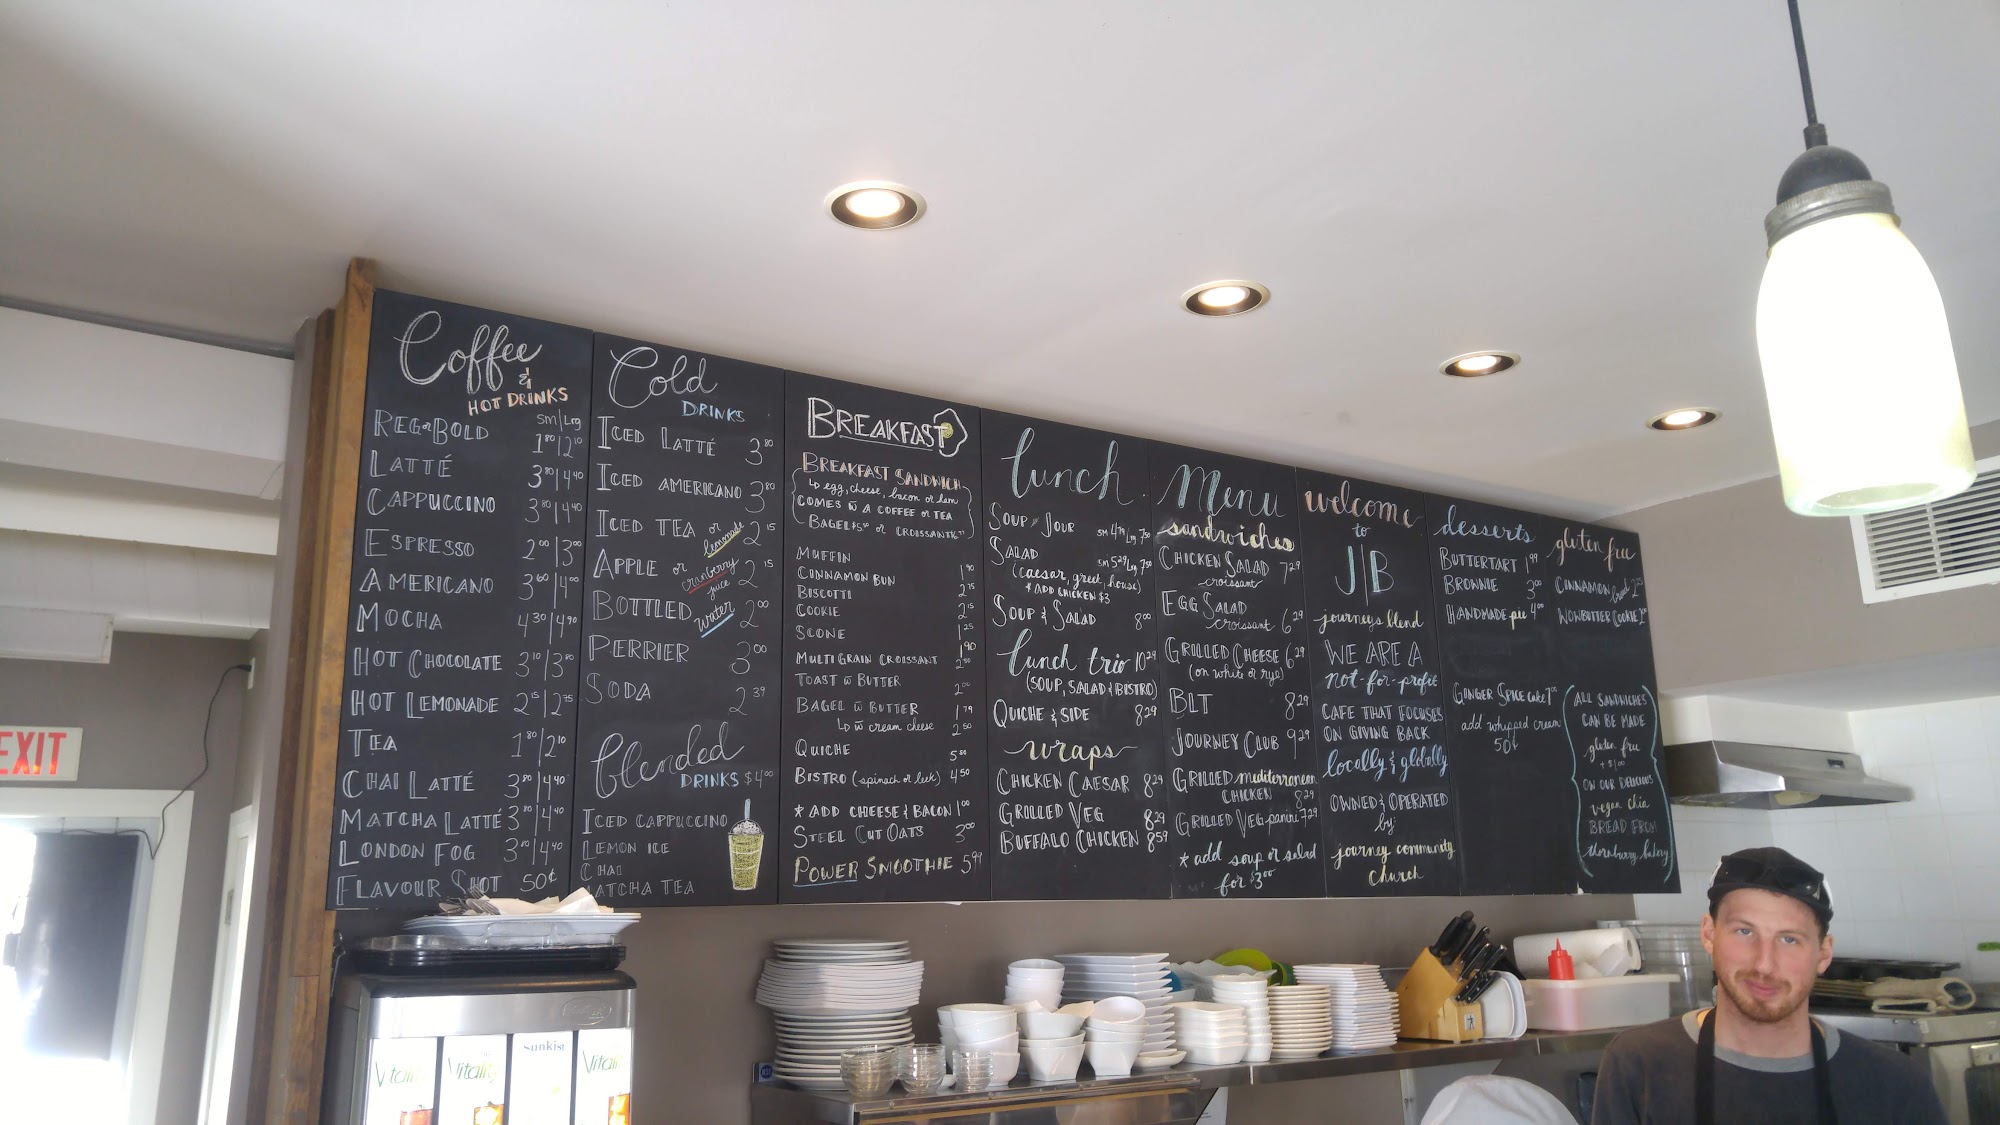 Coffee
&
HOT DRINKS
SM/Lrg
REG or BOLD 1 80 | 2 10
LATTÉ 3 80 | 4 40
CAPPUCCINO 3 80 | 4 40
ESPRESSO 2 00 | 3 00
AMERICANO 3 60 | 4 00
MOCHA 4 30 | 4 90
HOT CHOCOLATE 3 10 | 3 80
HOT LEMONADE 2 15 | 2 75
TEA 1 80 | 2 10
CHAI LATTÉ 3 80 | 4 40
MATCHA LATTÉ 3 80 | 4 40
LONDON FOG 3 80 | 4 40
FLAVOUR SHOT 50¢
Cold
DRINKS
ICED LATTÉ 3 80
ICED AMERICANO 3 80
ICED TEA or lemonade 2 15
APPLE or cranberry juice 2 15
BOTTLED water 2 00
PERRIER 3 00
SODA 2 39
blended
DRINKS $4 00
ICED CAPPUCCINO
LEMON ICE
CHAI
MATCHA TEA
BREAKFAST
BREAKFAST SANDWICH
↳ egg, cheese, bacon or ham
COMES w A COFFEE or TEA
BAGEL or CROISSANT
MUFFIN 1 90
CINNAMON BUN 2 15
BISCOTTI 2 15
COOKIE 1 25
SCONE 1 90
MULTIGRAIN CROISSANT 2 50
TOAST w BUTTER 2 00
BAGEL w BUTTER 1 79
↳ w cream cheese 2 50
QUICHE 5 50
BISTRO (spinach or leek) 4 50
* ADD CHEESE & BACON 1 00
STEEL CUT OATS 3 00
POWER SMOOTHIE 5 99
lunch
SOUP du JOUR SM 4 79 Lg 7 50
SALAD SM 5 29 Lg 7 50
(caesar, greek, house)
* ADD CHICKEN $3
SOUP & SALAD 8 00
lunch trio 10 29
(SOUP, SALAD & BISTRO)
QUICHE & SIDE 8 29
wraps
CHICKEN CAESAR 8 29
GRILLED VEG 8 29
BUFFALO CHICKEN 8 59
Menu
sandwiches
CHICKEN SALAD 7 29
croissant
EGG SALAD
croissant 6 29
GRILLED CHEESE 6 29
(on white or rye)
BLT 8 29
JOURNEY CLUB 9 29
GRILLED mediterranean
CHICKEN 8 29
GRILLED VEG panini 7 29
* add soup or salad
for $3 00
welcome
to
J|B
journeys blend
WE ARE A
not-for-profit
CAFE THAT FOCUSES
ON GIVING BACK
locally & globally
OWNED & OPERATED
by:
journey community
church
desserts
BUTTERTART 1 99
BROWNIE 3 00
HANDMADE pie 4 00
GINGER SPICE CAKE
add whipped cream
50¢
gluten free
CINNAMON bread 2 25
WOWBUTTER COOKIE
ALL SANDWICHES
CAN BE MADE
gluten free
+ $1.00
ON OUR DELICIOUS
vegan chia
BREAD FROM
thornbury bakery
EXIT
Vitali
Vitali
Sunkist
Vitali